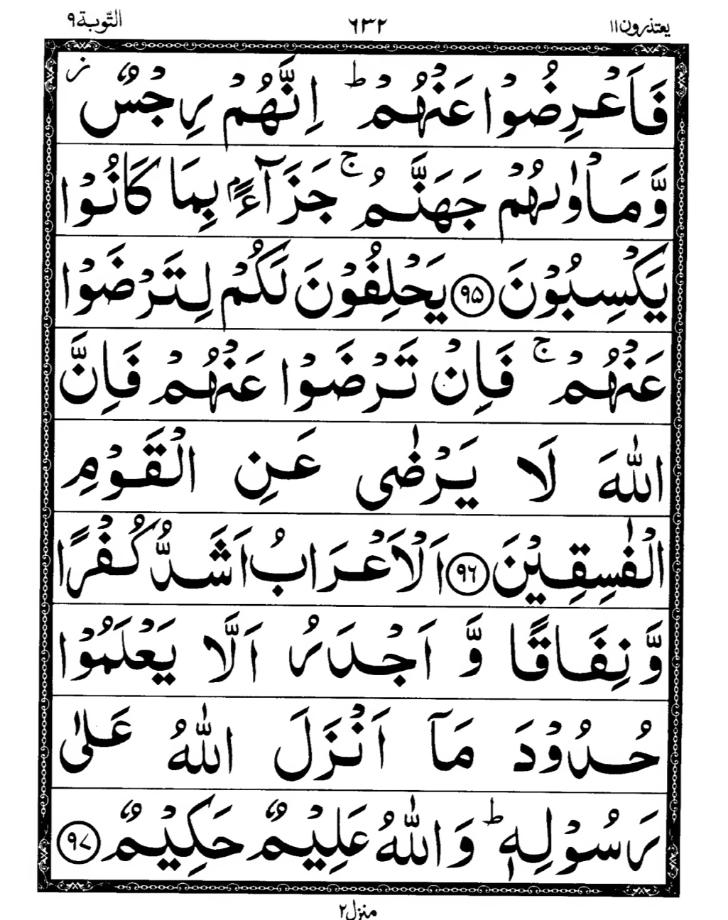 يعتذرون ١١ ٦٣٢ التّوبة ٩
فَاَعْرِضُوْا عَنْهُمْ ؕ اِنَّهُمْ رِجْسٌ ز
وَّمَاْوٰىهُمْ جَهَنَّمُ ۚ جَزَآءًۢ بِمَا كَانُوْا
يَكْسِبُوْنَ ﴿۹۵﴾ يَحْلِفُوْنَ لَكُمْ لِتَرْضَوْا
عَنْهُمْ ۚ فَاِنْ تَرْضَوْا عَنْهُمْ فَاِنَّ
اللّٰهَ لَا يَرْضٰى عَنِ الْقَوْمِ
الْفٰسِقِيْنَ ﴿۹۶﴾ اَلْاَعْرَابُ اَشَدُّ كُفْرًا
وَّنِفَاقًا وَّ اَجْدَرُ اَلَّا يَعْلَمُوْا
حُدُوْدَ مَآ اَنْزَلَ اللّٰهُ عَلٰى
رَسُوْلِهٖ ؕ وَاللّٰهُ عَلِيْمٌ حَكِيْمٌ ﴿۹۷﴾
منزل ٢